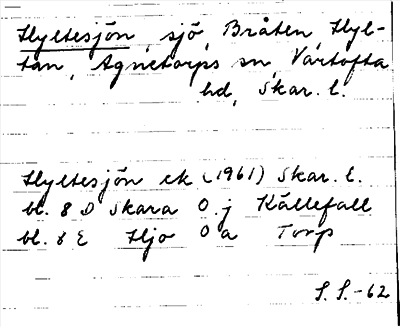 Hyltesjön, sjö, Bråten Hyl-
tan, Agnetorps sn, Vartofta
hd, Skar. l.
Hyltesjön ek (1961) Skar. l.
bl. 8 D Skara 0 j Källefall
bl. 8 E Hjo 0 a Torp
S. S. -62